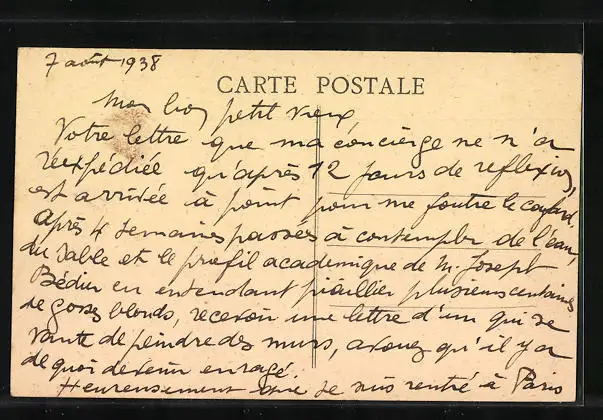 7 août 1938
CARTE POSTALE
Mon bon petit vieux,
Votre lettre que ma concierge ne m'a
réexpédiée qu'après 12 jours de reflexion,
est arrivée à point pour me foutre le cafard.
Après 4 semaines passées à contempler de l'eau,
du sable et le profil academique de M. Joseph
Bédier en entendant piailler plusieurs centaines
de gosses blonds, recevoir une lettre d'un qui se
vante de peindre des murs, avouez qu'il y a
de quoi devenir enragé.
Heureusement que je suis rentré à Paris